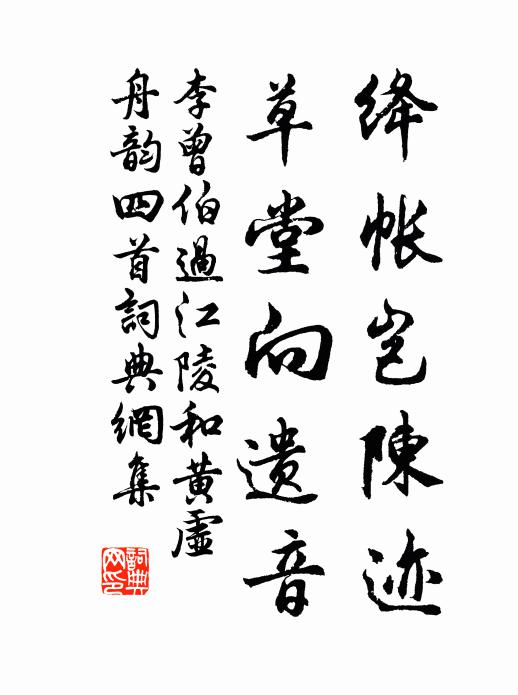 绛帐岂陳迹
草堂向遗音
李曾伯過江陵和黄虚
舟韵四首詞典網集
詞典网印